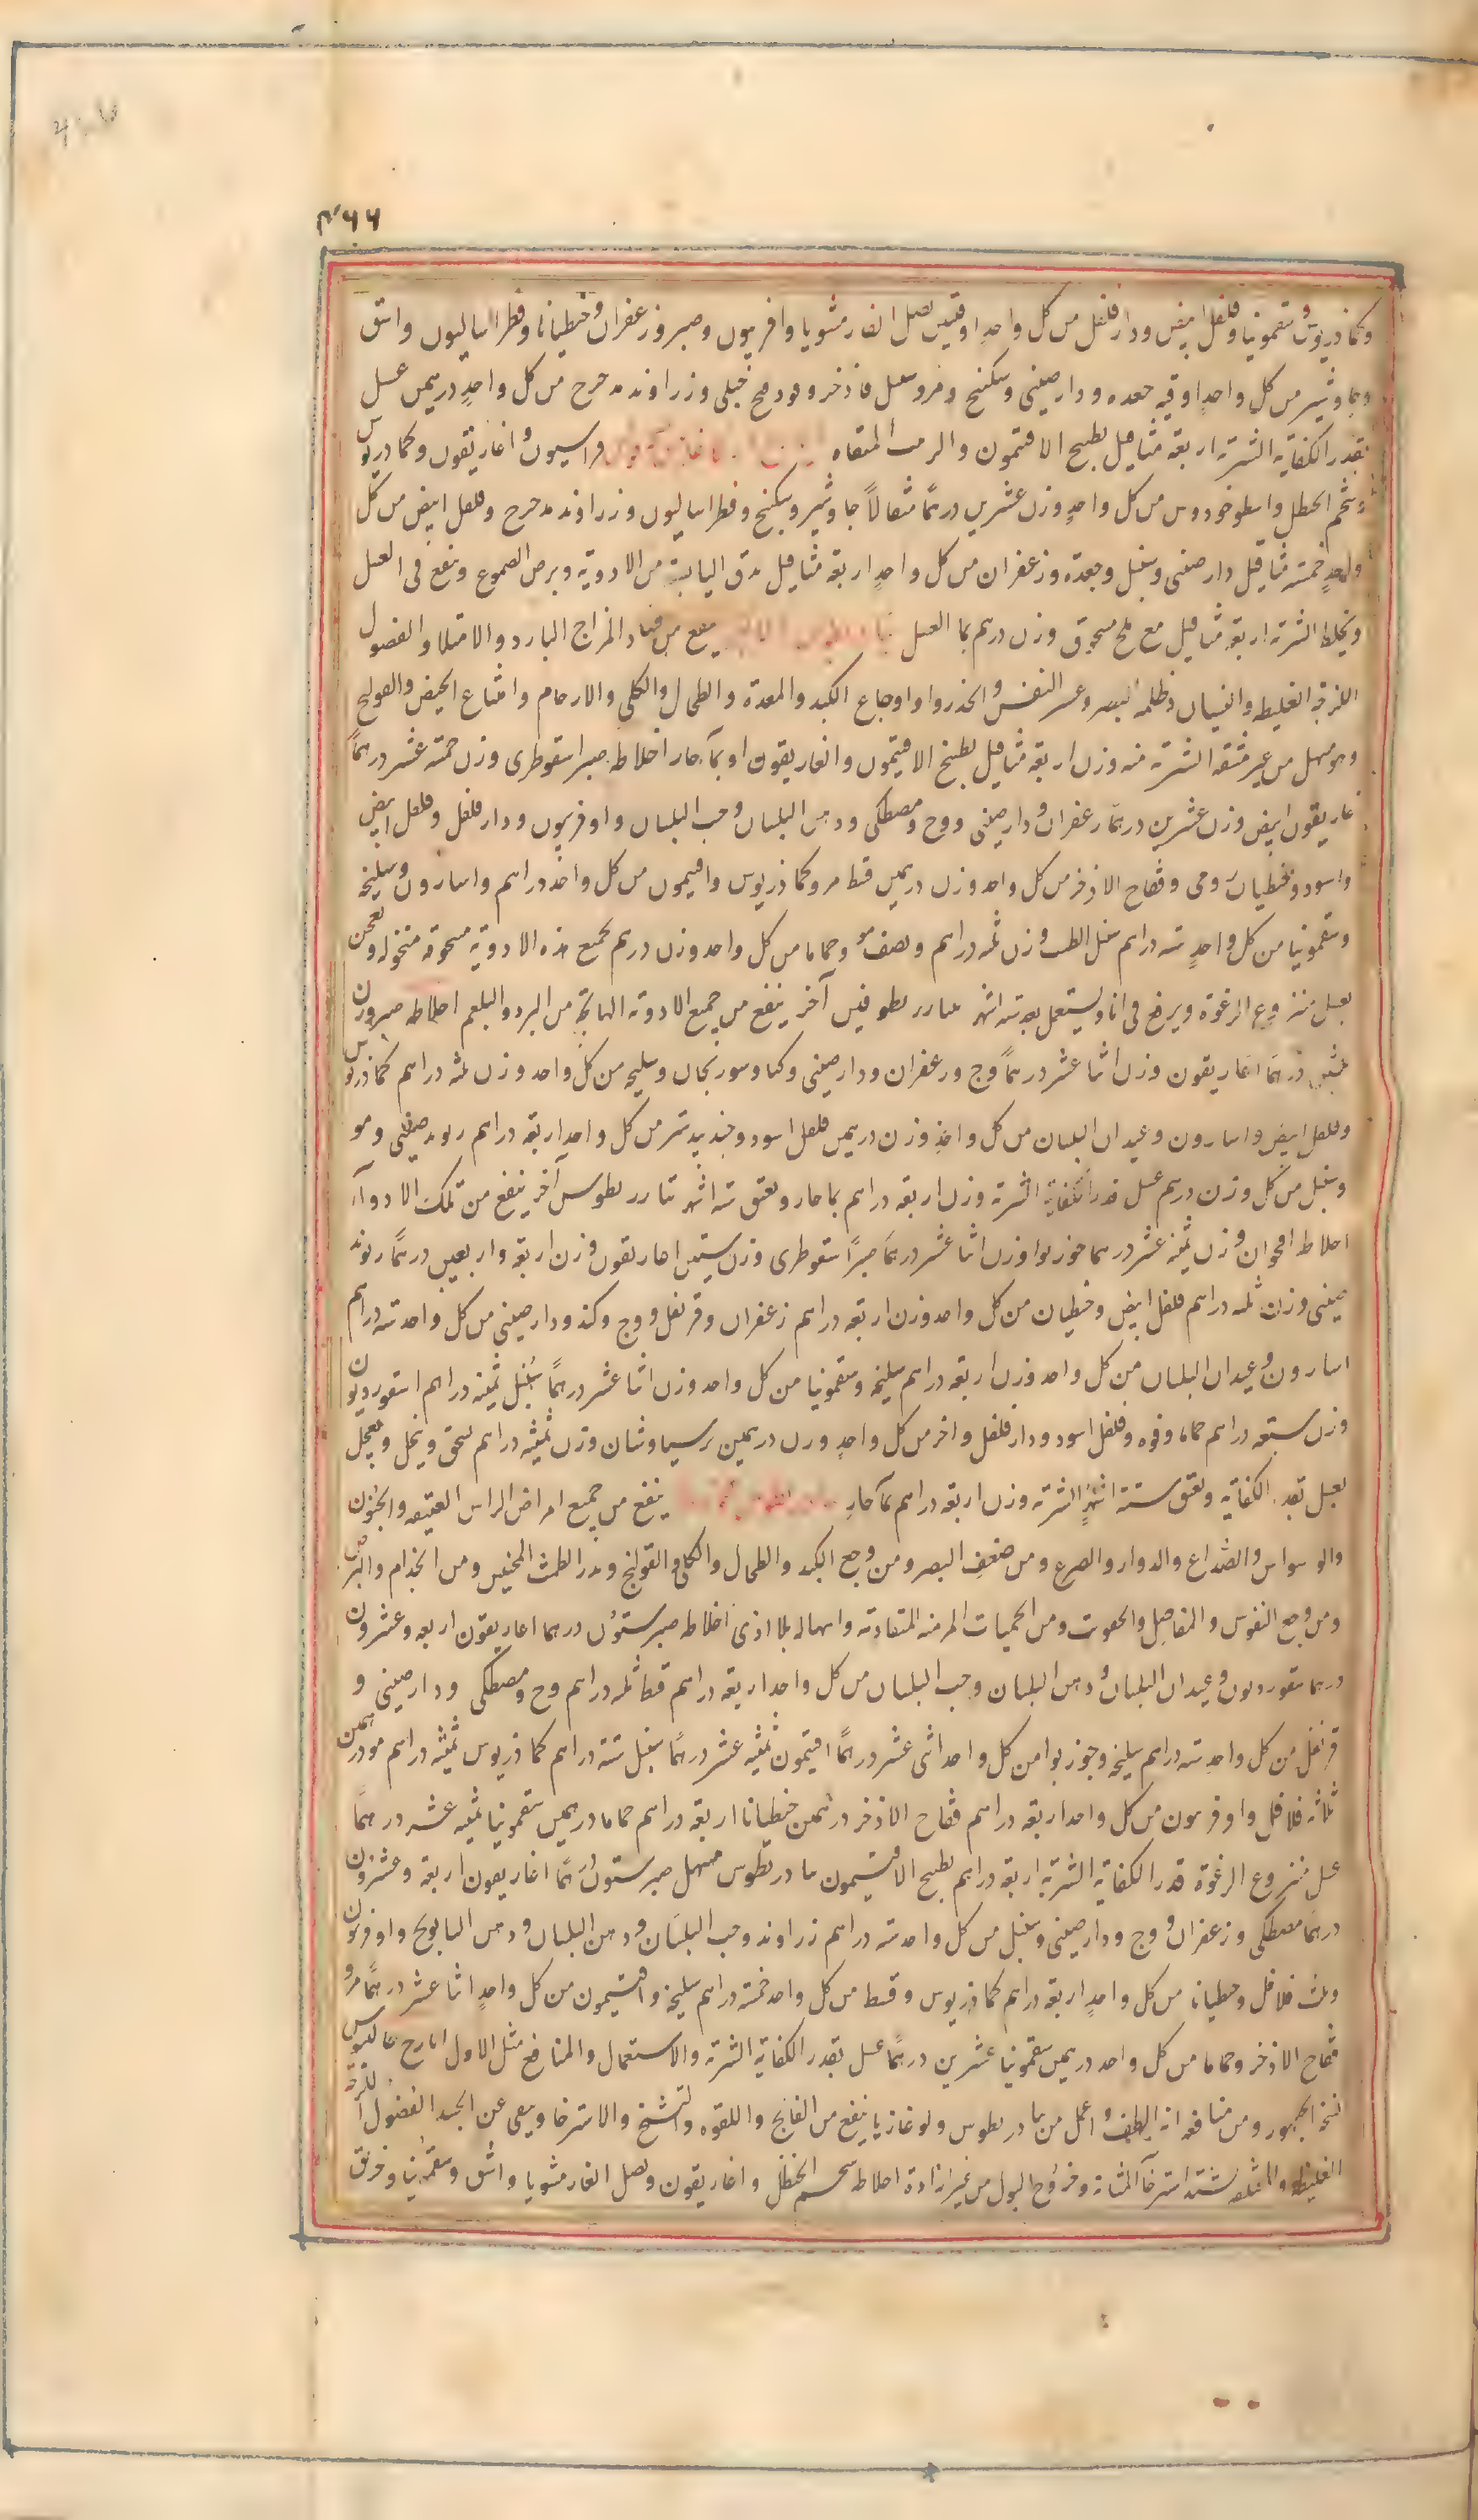 ۴۶۶
وكمادريوس وسقمونيا وفلفل ابيض ودارفلفل من كل واحد اوقيتين بصل الفار مشويا وافربيون وصبر وزعفران وجنطيانا وفطراساليون واشق
وجاوشير من كل واحد اوقيه جعده ودارصيني وسكبنج ومر وسنبل واذخر وفودنج جبلي وزراوند مدحرج من كل واحد درهمين عسل
بقدر الكفاية الشربة اربعة مثاقيل بطبيخ الافتيمون والزبيب المنقاه فراسيون واغاريقون وكمادريوس
وشحم الحنظل واسطوخودوس من كل واحد وزن عشرين درهما مثقالا جاوشير وسكبنج وفطراساليون وزراوند مدحرج وفلفل ابيض من كل
واحد خمسة مثاقيل دارصيني وسنبل وجعدة وزعفران من كل واحد اربعة مثاقيل تدق اليابسة من الادوية ويرض الصموغ وينقع في العسل
ويخلط الشربة اربعة مثاقيل مع ملح مسحوق وزن درهم بماء العسل ينفع من فساد المزاج البارد والامتلا والفضول
اللزجة الغليظه والنسيان وظلمه البصر وعسر النفس والخدر واوجاع الكبد والمعدة والطحال والكلى والارحام وامتناع الحيض والقولنج
وهو مسهل من غير مشقة الشربة منه وزن اربعة مثاقيل بطبيخ الافتيمون واغاريقون او بماء حار اخلاطه صبر اسقوطرى وزن خمسة عشر درهما
غاريقون ابيض وزن عشرين درهما زعفران ودارصيني ووج ومصطكى ودهن البلسان وحب البلسان واوفربيون ودارفلفل وفلفل ابيض
واسود وجنطيان رومى وفقاح الاذخر من كل واحد وزن درهمين قسط مر وكمادريوس وافتيمون من كل واحد دراهم واسارون وسليخه
وسقمونيا من كل واحد ستة دراهم سنبل الطيب وزن ثلثه دراهم ونصف مو وحماما من كل واحد وزن درهم يجمع هذه الادوية مسحوقة منخوله وتعجن
بعسل منزوع الرغوة ويرفع في اناء ويستعمل بعد ستة اشهر ينفع من جميع الادوية الهائجة من البرد والبلغم اخلاطه صبر وزن
درهما اغاريقون وزن اثنا عشر درهما وج وزعفران ودارصيني وكيا وسورنجان وسليخه من كل واحد وزن ثلثة دراهم كمادريوس
وفلفل ابيض واسارون وعيدان البلسان من كل واحد وزن درهمين فلفل اسود وجندبيدستر من كل واحد اربعة دراهم ريوند صيني ومو
وسنبل من كل وزن درهم عسل قدر الكفاية الشربة وزن اربعة دراهم بماء حار ويعتق ستة اشهر تيادريطوس آخر ينفع من تلك الادواء
اخلاطه اقحوان وزن ثمنية عشر درهما جوزبوا وزن اثنا عشر درهما صبرا سقوطرى وزن ستين اغاريقون وزن اربعة واربعين درهما ريوند
صيني وزن ثلثه دراهم فلفل ابيض وجنطيان من كل واحد وزن اربعة دراهم زعفران وقرنفل ووج وكندر ودارصيني من كل واحد ستة دراهم
اسارون وعيدان البلسان من كل واحد وزن اربعة دراهم سليخه وسقمونيا من كل واحد وزن اثنا عشر درهما سنبل ثمنية دراهم اسقورديون
وزن سبعة دراهم حماما وفوه وفلفل اسود ودارفلفل واذخر من كل واحد وزن درهمين برسياوشان وزن ثمنية دراهم يسحق وينخل ويعجن
بعسل بقدر الكفاية ويعتق ستة اشهر الشربة وزن اربعة دراهم بماء حار ينفع من جميع امراض الراس العتيقه والجنون
والوسواس والصداع والدوار والصرع ومن ضعف البصر ومن وجع الكبد والطحال والكلى والقولنج ويدر الطمث المحتبس ومن الجذام والبرص
ومن وجع النقرس والمفاصل ومن الحميات المزمنه المتقادمة واسهاله بلا اذى اخلاطه صبر ستون درهما اغاريقون اربعه وعشرون
درهما سقورديون وعيدان البلسان ودهن البلسان وحب البلسان من كل واحد اربعة دراهم قسط ثلثه دراهم وج ومصطكى ودارصيني و
قرنفل من كل واحد ستة دراهم سليخه وجوزبوا من كل واحد اثنى عشر درهما افتيمون ثمنية عشر درهما سنبل ستة دراهم كمادريوس ثمنية دراهم مو درهمين
ثلاثه فلافل واوفربيون من كل واحد اربعة دراهم فقاح الاذخر درهمين جنطيانا اربعة دراهم حماما درهمين سقمونيا ثمنية عشر درهما
عسل منزوع الرغوة قدر الكفاية الشربة اربعة دراهم بطبيخ الافتيمون يادريطوس مسهل صبر ستون درهما اغاريقون اربعة وعشرون
درهما مصطكى وزعفران ووج ودارصيني وسنبل من كل واحد ستة دراهم زراوند وحب البلسان ودهن البلسان ودهن البابونج واوفربيون
وثلث فلافل وجنطيانا من كل واحد اربعة دراهم كمادريوس وقسط من كل واحد خمسة دراهم سليخه وافتيمون من كل واحد اثنا عشر درهما مر و
فقاح الاذخر وحماما من كل واحد درهمين سقمونيا عشرين درهما عسل بقدر الكفاية الشربة والاستعمال والمنافع مثل الاول ايارج جالينوس
نسخة الجمهور ومن منافعه انه الطف واعمل من يادريطوس ولوغاذيا ينفع من الفالج واللقوه والتشنج والاسترخا وينقى عن الجسد الفضول اللزجة
الغليظه استرخاء المثانة وخروج البول من غير ارادة اخلاطه شحم الحنظل واغاريقون وبصل الفار مشويا واشق وسقمونيا وخربق